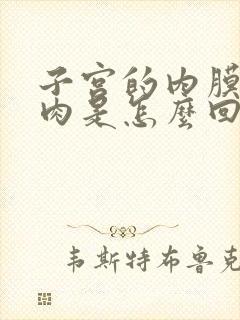 子宫的内膜
肉是怎麽回
韦斯特布鲁克